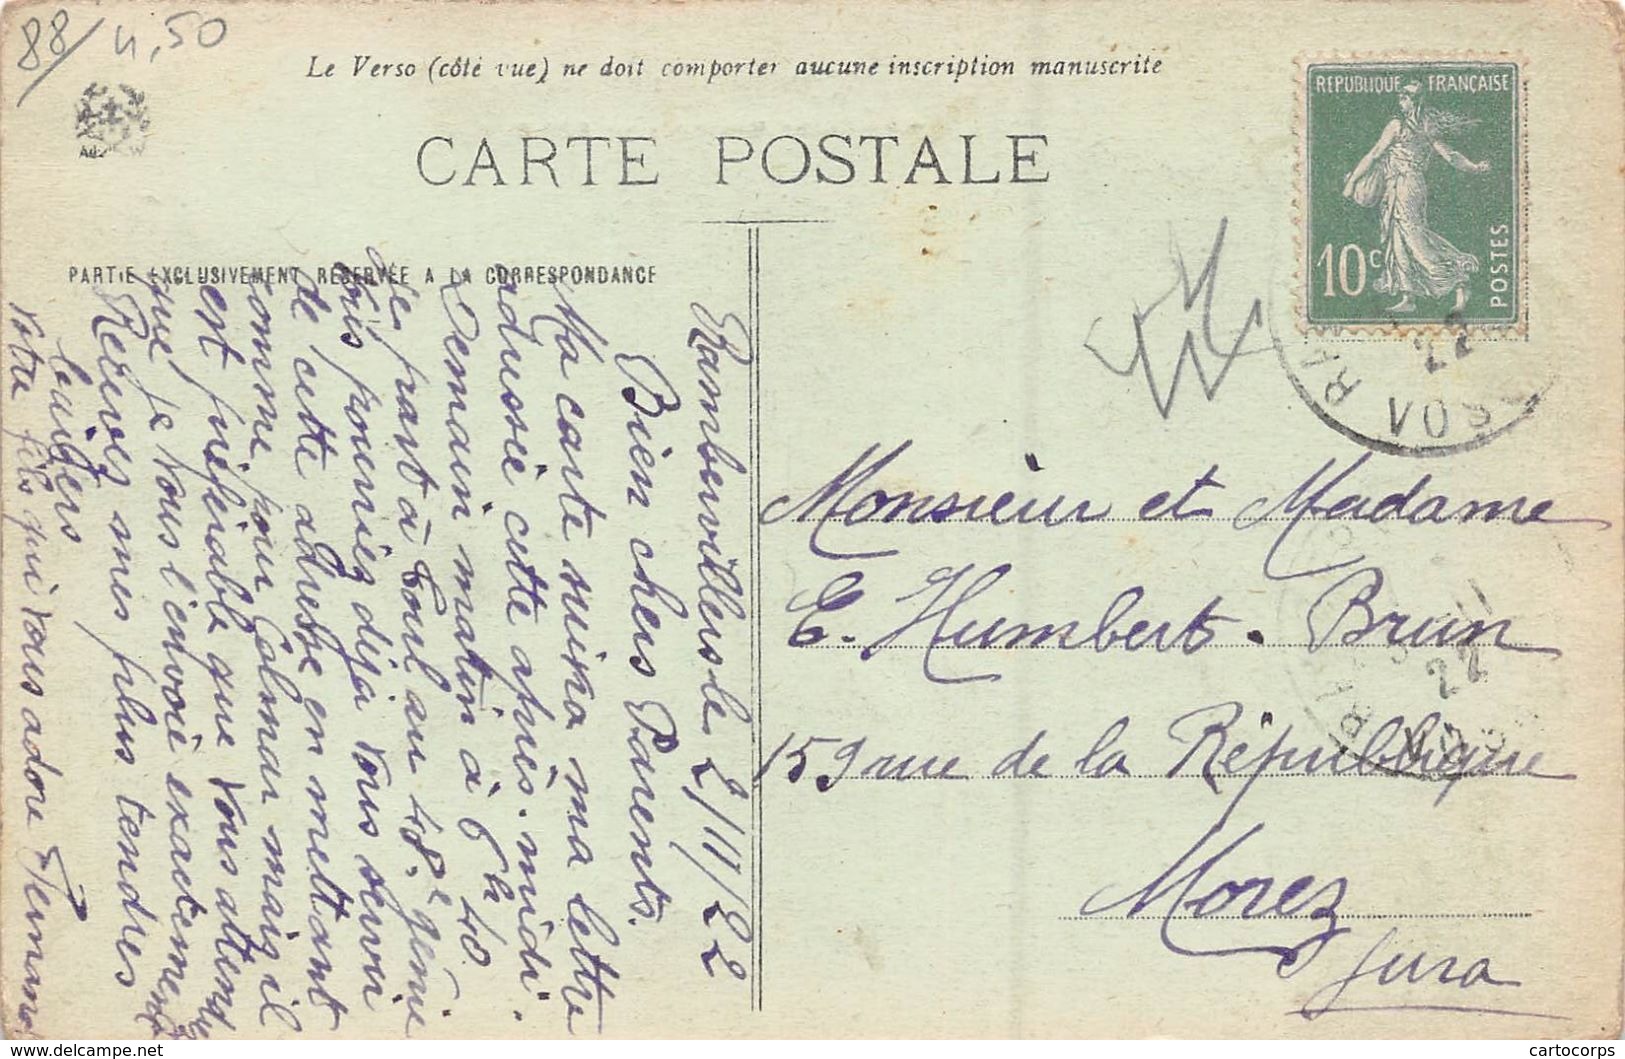 88/ 4,50
Le Verso (côté vue) ne doit comporter aucune inscription manuscrite
CARTE POSTALE
PARTIE EXCLUSIVEMENT RÉSERVÉE A LA CORRESPONDANCE
REPUBLIQUE FRANÇAISE
10c
POSTES
22
Rambervillers le 2/11/22
Bien chers Parents.
Ma carte suivra ma lettre
adressée cette après-midi.
Demain matin à 6h 40
je part à Toul au 10e génie
vous pourriez déja vous servir
de cette adresse en mettant
comme pour Colmar mais il
est préférable que vous attendiez
que je vous l'envoie exactement
Recevez mes plus tendres
baisers
Votre fils qui vous adore Fernand
Monsieur et Madame
E. Humbert-Brun
159 rue de la République
Morez
Jura
22
cartocorps